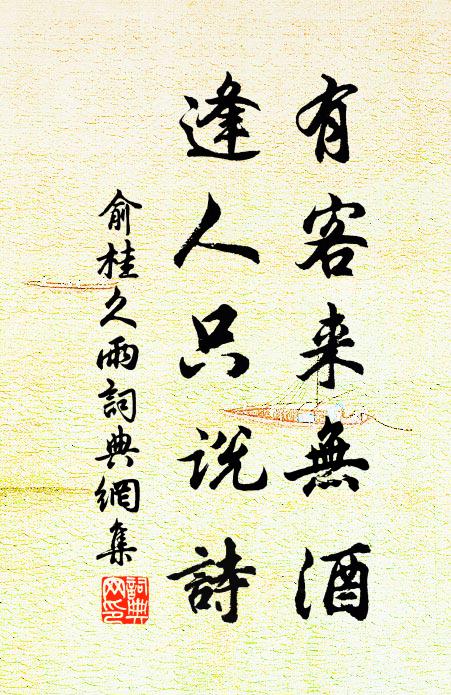 有客来無酒
逢人只说詩
俞桂久雨詞典網集
詞典網印